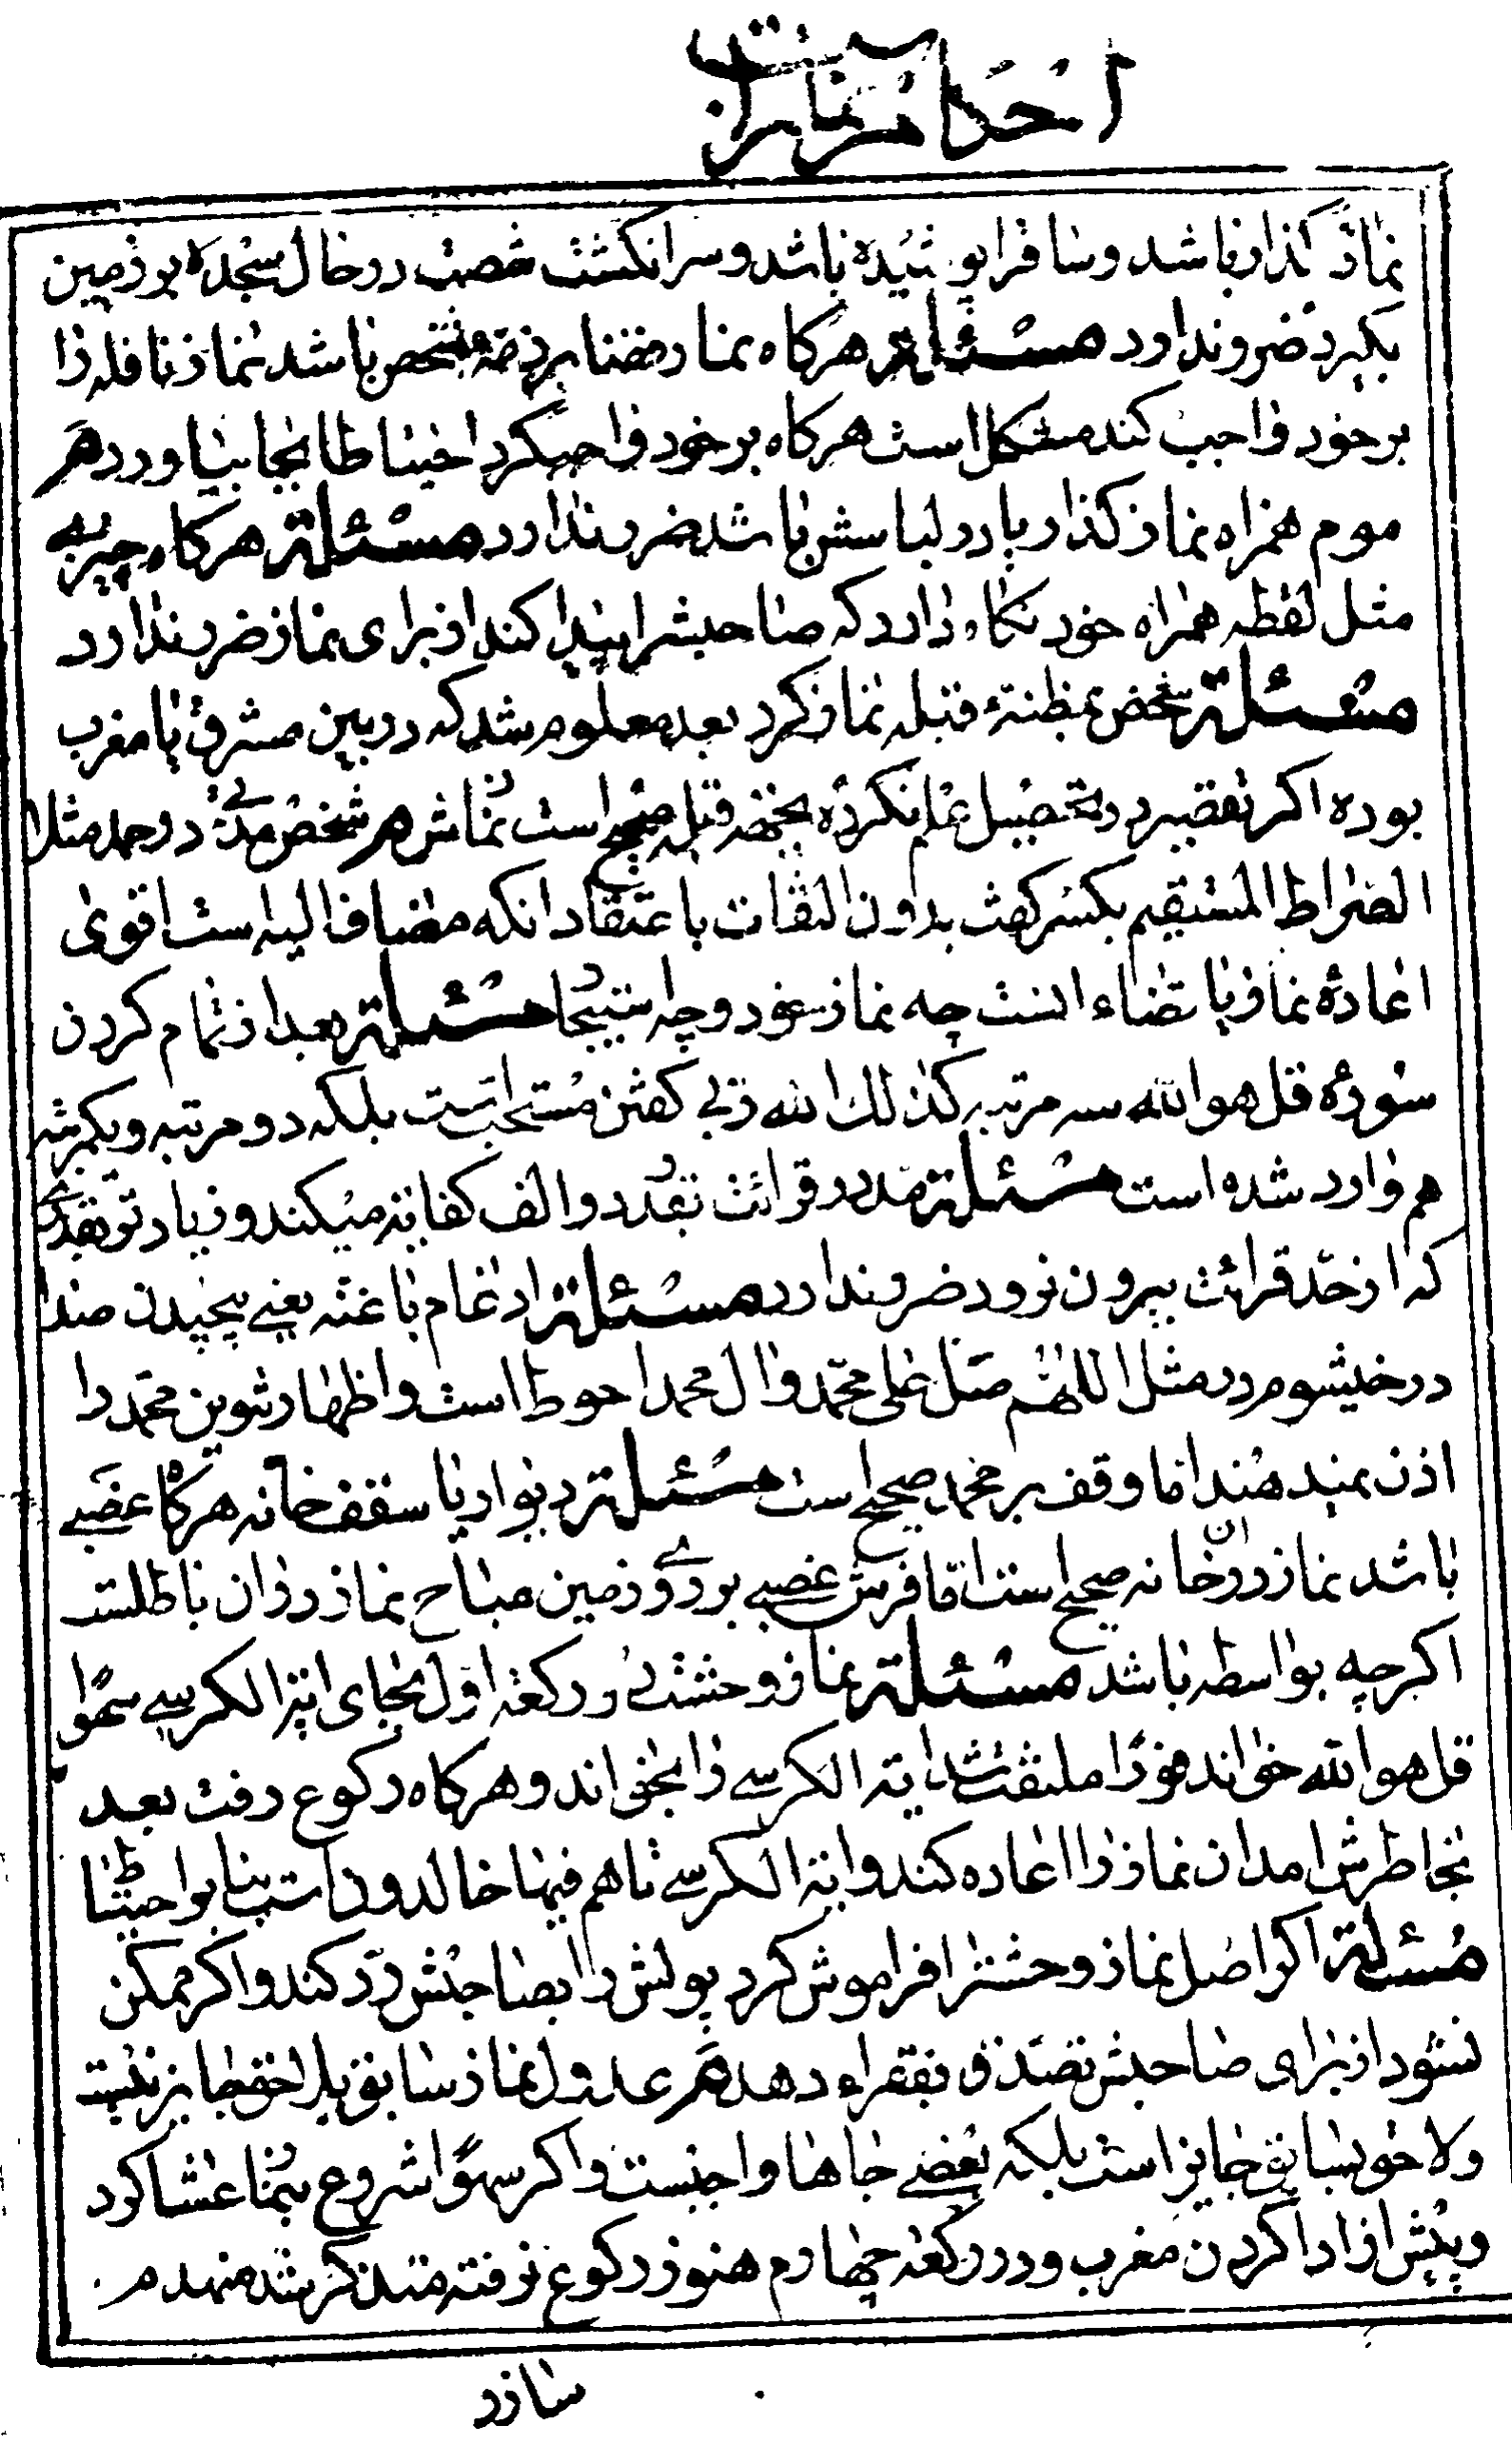 احکام نماز است
نماز گذار باشد و ساقرا پوشیده باشد و سر انکشت شصت در حال سجده بر زمین
بکیرد ضرر ندارد مسئلة هرکاه نماز قضا بر ذمه شخص باشد نماز نافله را
بر خود واجب کند مشکل است هرکاه بر خود واجب کرد احتیاطا بجا بیاورد هر
موم همراه نماز کذار یا در لباسش باشد ضرر ندارد مسئلة هرکاه چیزی
مثل لقطه همراه خود نکاه دارد که صاحبشرا پیدا کند از برای نماز ضرر ندارد
مسئلة شخص بمظنهٔ قبله نماز کرد بعد معلوم شد که در بین مشرق یا مغرب
بوده اکر تقصیر در تحصیل علم نکرده بجهة قبله صحیح است نمازش هر شخص مدتی در حمد مثلا
الصراط المستقیم بکسر کفت بدون التفات باعتقاد انکه مضاف الیه است اقوی
اعادهٔ نماز یا قضاء انست چه نماز خود و چه استیجار مسئلة بعد از تمام کردن
سورهٔ قل هو الله سه مرتبه کذلك الله ربی کفتن مستحب است بلکه دو مرتبه و یکمرتبه
هم وارد شده است مسئلة مد در قرائت بقدر دو الف کفایة میکند و زیادتر بقدری
که از حد قرائت بیرون نرود ضرر ندارد مسئلة ادغام با غنه یعنی پیچیدن صدا
در خیشوم در مثل اللهم صل علی محمد وال محمد احوط است و اظهار تنوین محمد را
اذن نمیدهند اما وقف بر محمد صحیح است مسئلة دیوار یا سقف خانه هرکاه غصبی
باشد نماز در ان خانه صحیح است اما فرش غصبی بر روی زمین مباح نماز در ان باطلست
اکر چه بواسطه باشد مسئلة نماز وحشت در رکعة اول بجای ایة الکرسی سهوا
قل هو الله خواند فورا ملتفت شد ایة الکرسی را بخواند و هرکاه رکوع رفت بعد
بخاطرش امد ان نماز را اعاده کند و ایة الکرسی تا هم فیها خالدون است بنا بر احتیاط
مسئلة اکر اصل نماز وحشترا فراموش کرد پولش را بصاحبش رد کند و اکر ممکن
نشود از برای صاحبش تصدق بفقراء دهد هر عدول نماز سابق بلاحق جایز نیست
ولاحق بسابق جایز است بلکه بعضی جاها واجبست و اکر سهوا شروع بنماز عشا کرد
و پیش از ادا کردن مغرب و در رکعة چهارم هنوز رکوع نرفته متذکر شد منهدم
سازد